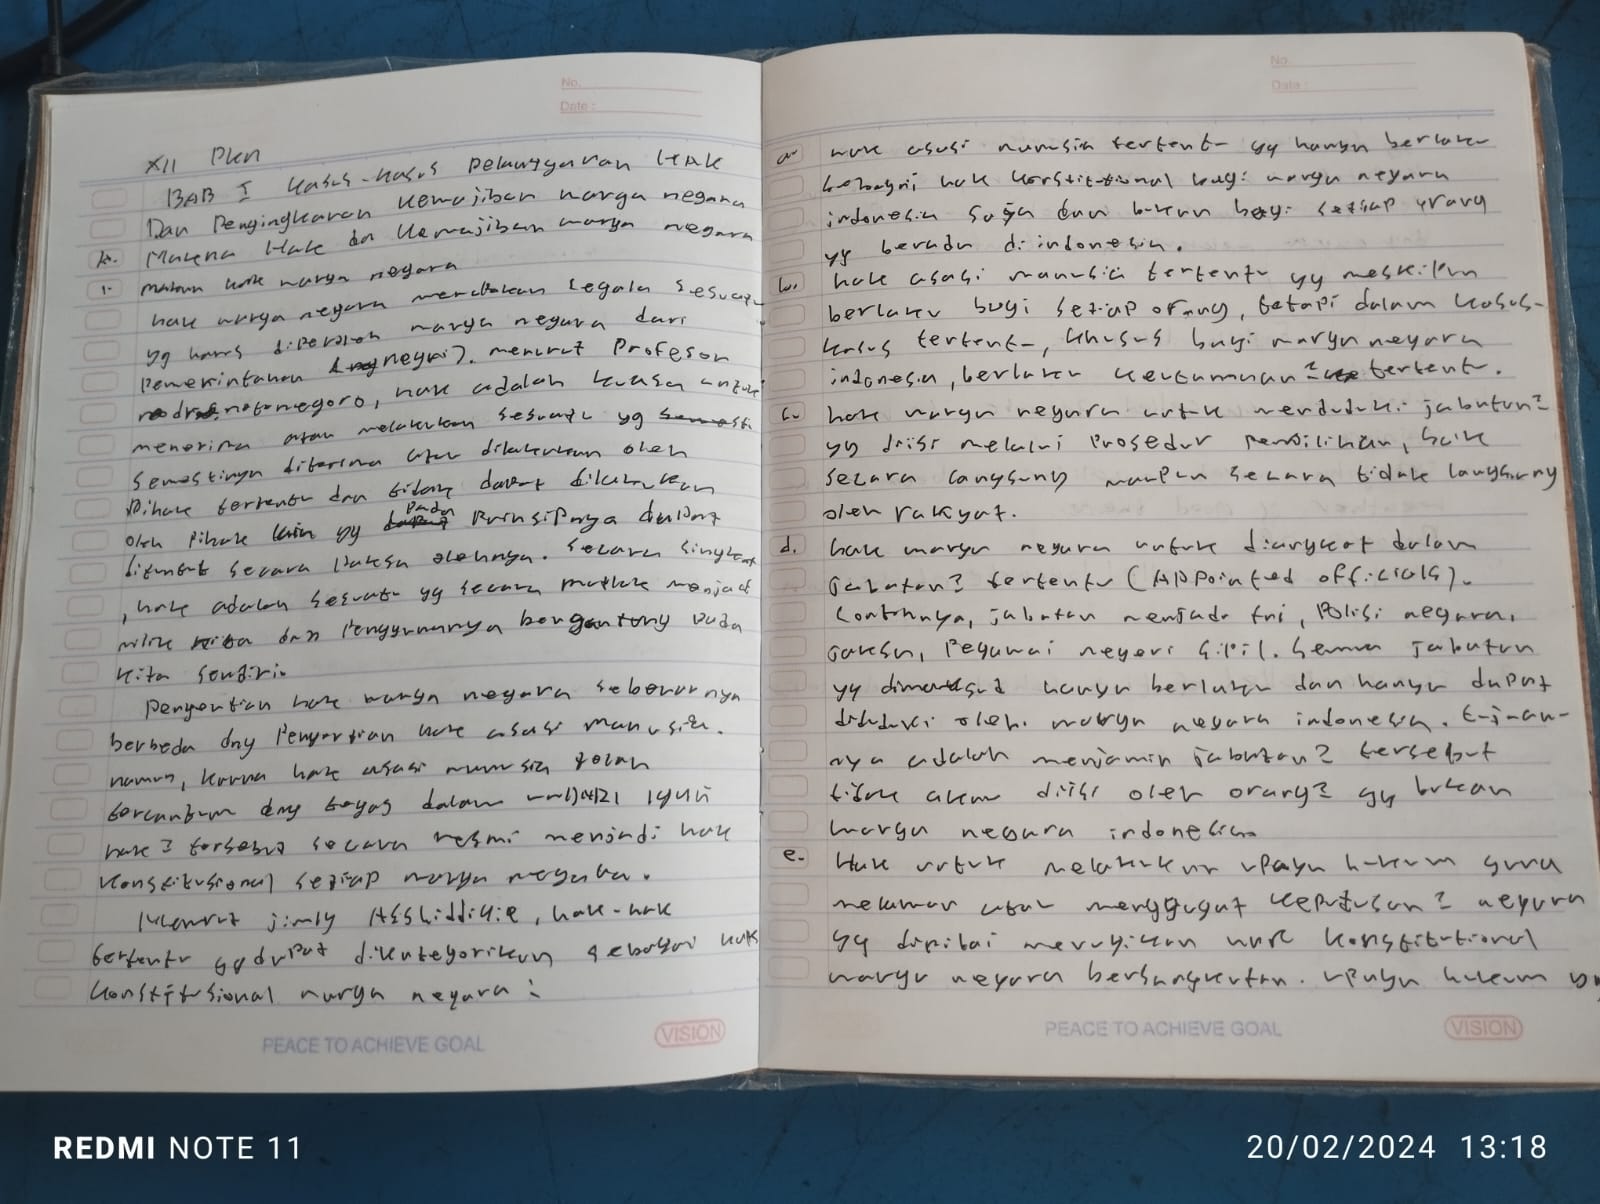 No.
Date :
XII PKn
BAB I Kasus-Kasus Pelanggaran Hak
Dan Pengingkaran Kewajiban warga negara
A. Makna Hak dan Kewajiban warga negara
1. makna hak warga negara
hak warga negara merupakan segala sesuatu
yg harus diperoleh warga negara dari
Pemerintahan (negri). menurut Profesor
notonegoro, hak adalah kuasa untuk
menerima atau melakukan sesuatu yg
semestinya diterima atau dilakukan oleh
Pihak tertentu dan tidak dapat dilakukan
oleh Pihak lain yg Pada Prinsipnya dapat
dituntut secara Paksa olehnya. Secara singkat
, hak adalah sesuatu yg secara mutlak menjadi
milik kita dan Penggunanya bergantung Pada
kita sendiri.
Pengertian hak warga negara sebenarnya
berbeda dng Pengertian hak asasi manusia.
namun, karna hak asasi manusia telah
tercantum dng tegas dalam UUDNRI 1945
hak2 tersebut secara resmi menjadi hak
Konstitusional setiap warga negara.
Menurut jimly Asshiddiqie, hak-hak
tertentu yg dapat dikategorikan sebagai hak
Konstitusional warga negara :
PEACE TO ACHIEVE GOAL
VISION
No.
Date :
a. hak asasi manusia tertentu yg hanya berlaku
sebagai hak Konstitutional bagi warga negara
indonesia saja dan bukan bagi setiap orang
yg berada di indonesia.
b. hak asasi manusia tertentu yg meskipun
berlaku bagi setiap orang, tetapi dalam kasus-
kasus tertentu, khusus bagi warga negara
indonesia, berlaku keutamaan2 tertentu.
c. hak warga negara untuk menduduki jabatan2
yg diisi melalui Prosedur Pemilihan, baik
secara langsung maupun secara tidak langsung
oleh rakyat.
d. hak warga negara untuk diangkat dalam
Jabatan2 tertentu (APPointed officials).
Contohnya, jabatan menjadi tni, Polisi negara,
Jaksa, Pegawai negeri Sipil. Semua jabatan
yg dimaksud hanya berlaku dan hanya dapat
diduduki oleh warga negara indonesia. tujuan-
nya adalah menjamin jabatan2 tersebut
tidak akan diisi oleh orang2 yg bukan
warga negara indonesia
e. Hak untuk melakukan upaya hukum guna
melawan atau menggugat keputusan2 negara
yg dinilai merugikan hak Konstitutional
warga negara bersangkutan. upaya hukum
PEACE TO ACHIEVE GOAL
VISION
REDMI NOTE 11
20/02/2024 13:18